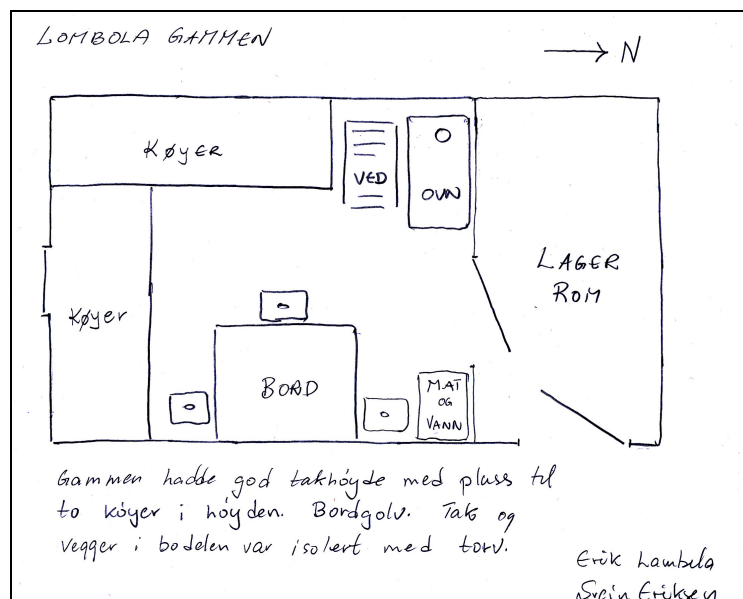 LOMBOLA GAMMEN
N
KØYER
VED
OVN
LAGER
ROM
KØYER
BORD
MAT
OG
VANN
Gammen hadde god takhøyde med plass til
to køyer i høyden. Bordgolv. Tak og
vegger i bodelen var isolert med torv.
Erik Lambela
Svein Eriksen